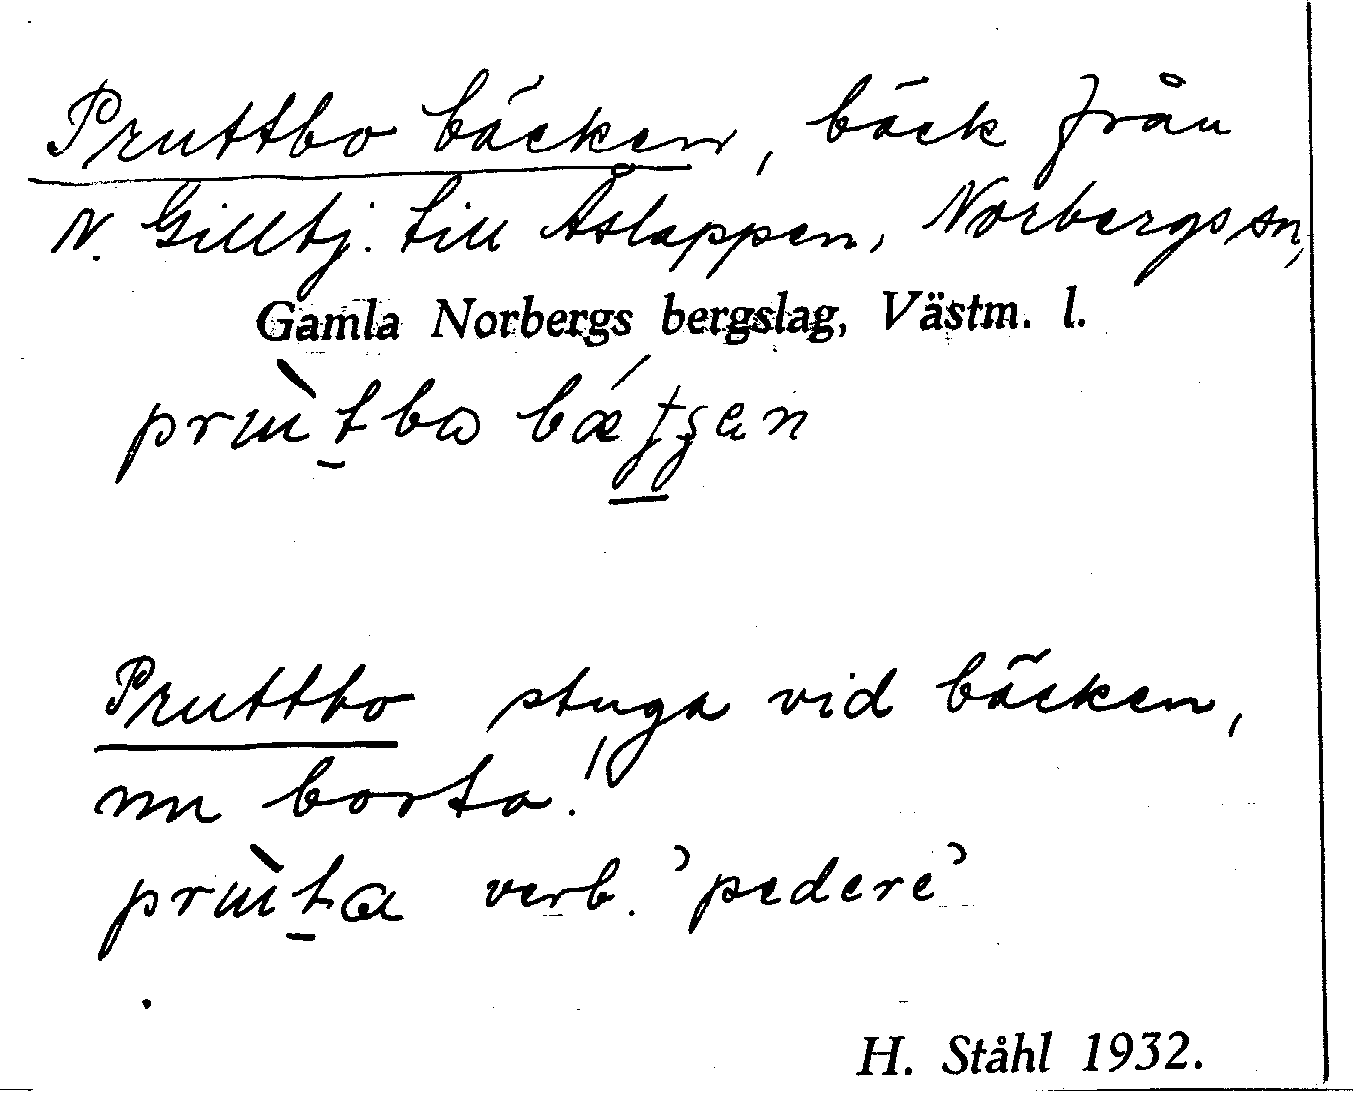 Pruttbo bäcken, bäck från
N. Gilltj. till Åslappen, Norbergs sn,
Gamla Norbergs bergslag, Västm. l.
Pruttbo stuga vid bäcken,
nu borta!
verb. 'pedere'
H. Ståhl 1932.